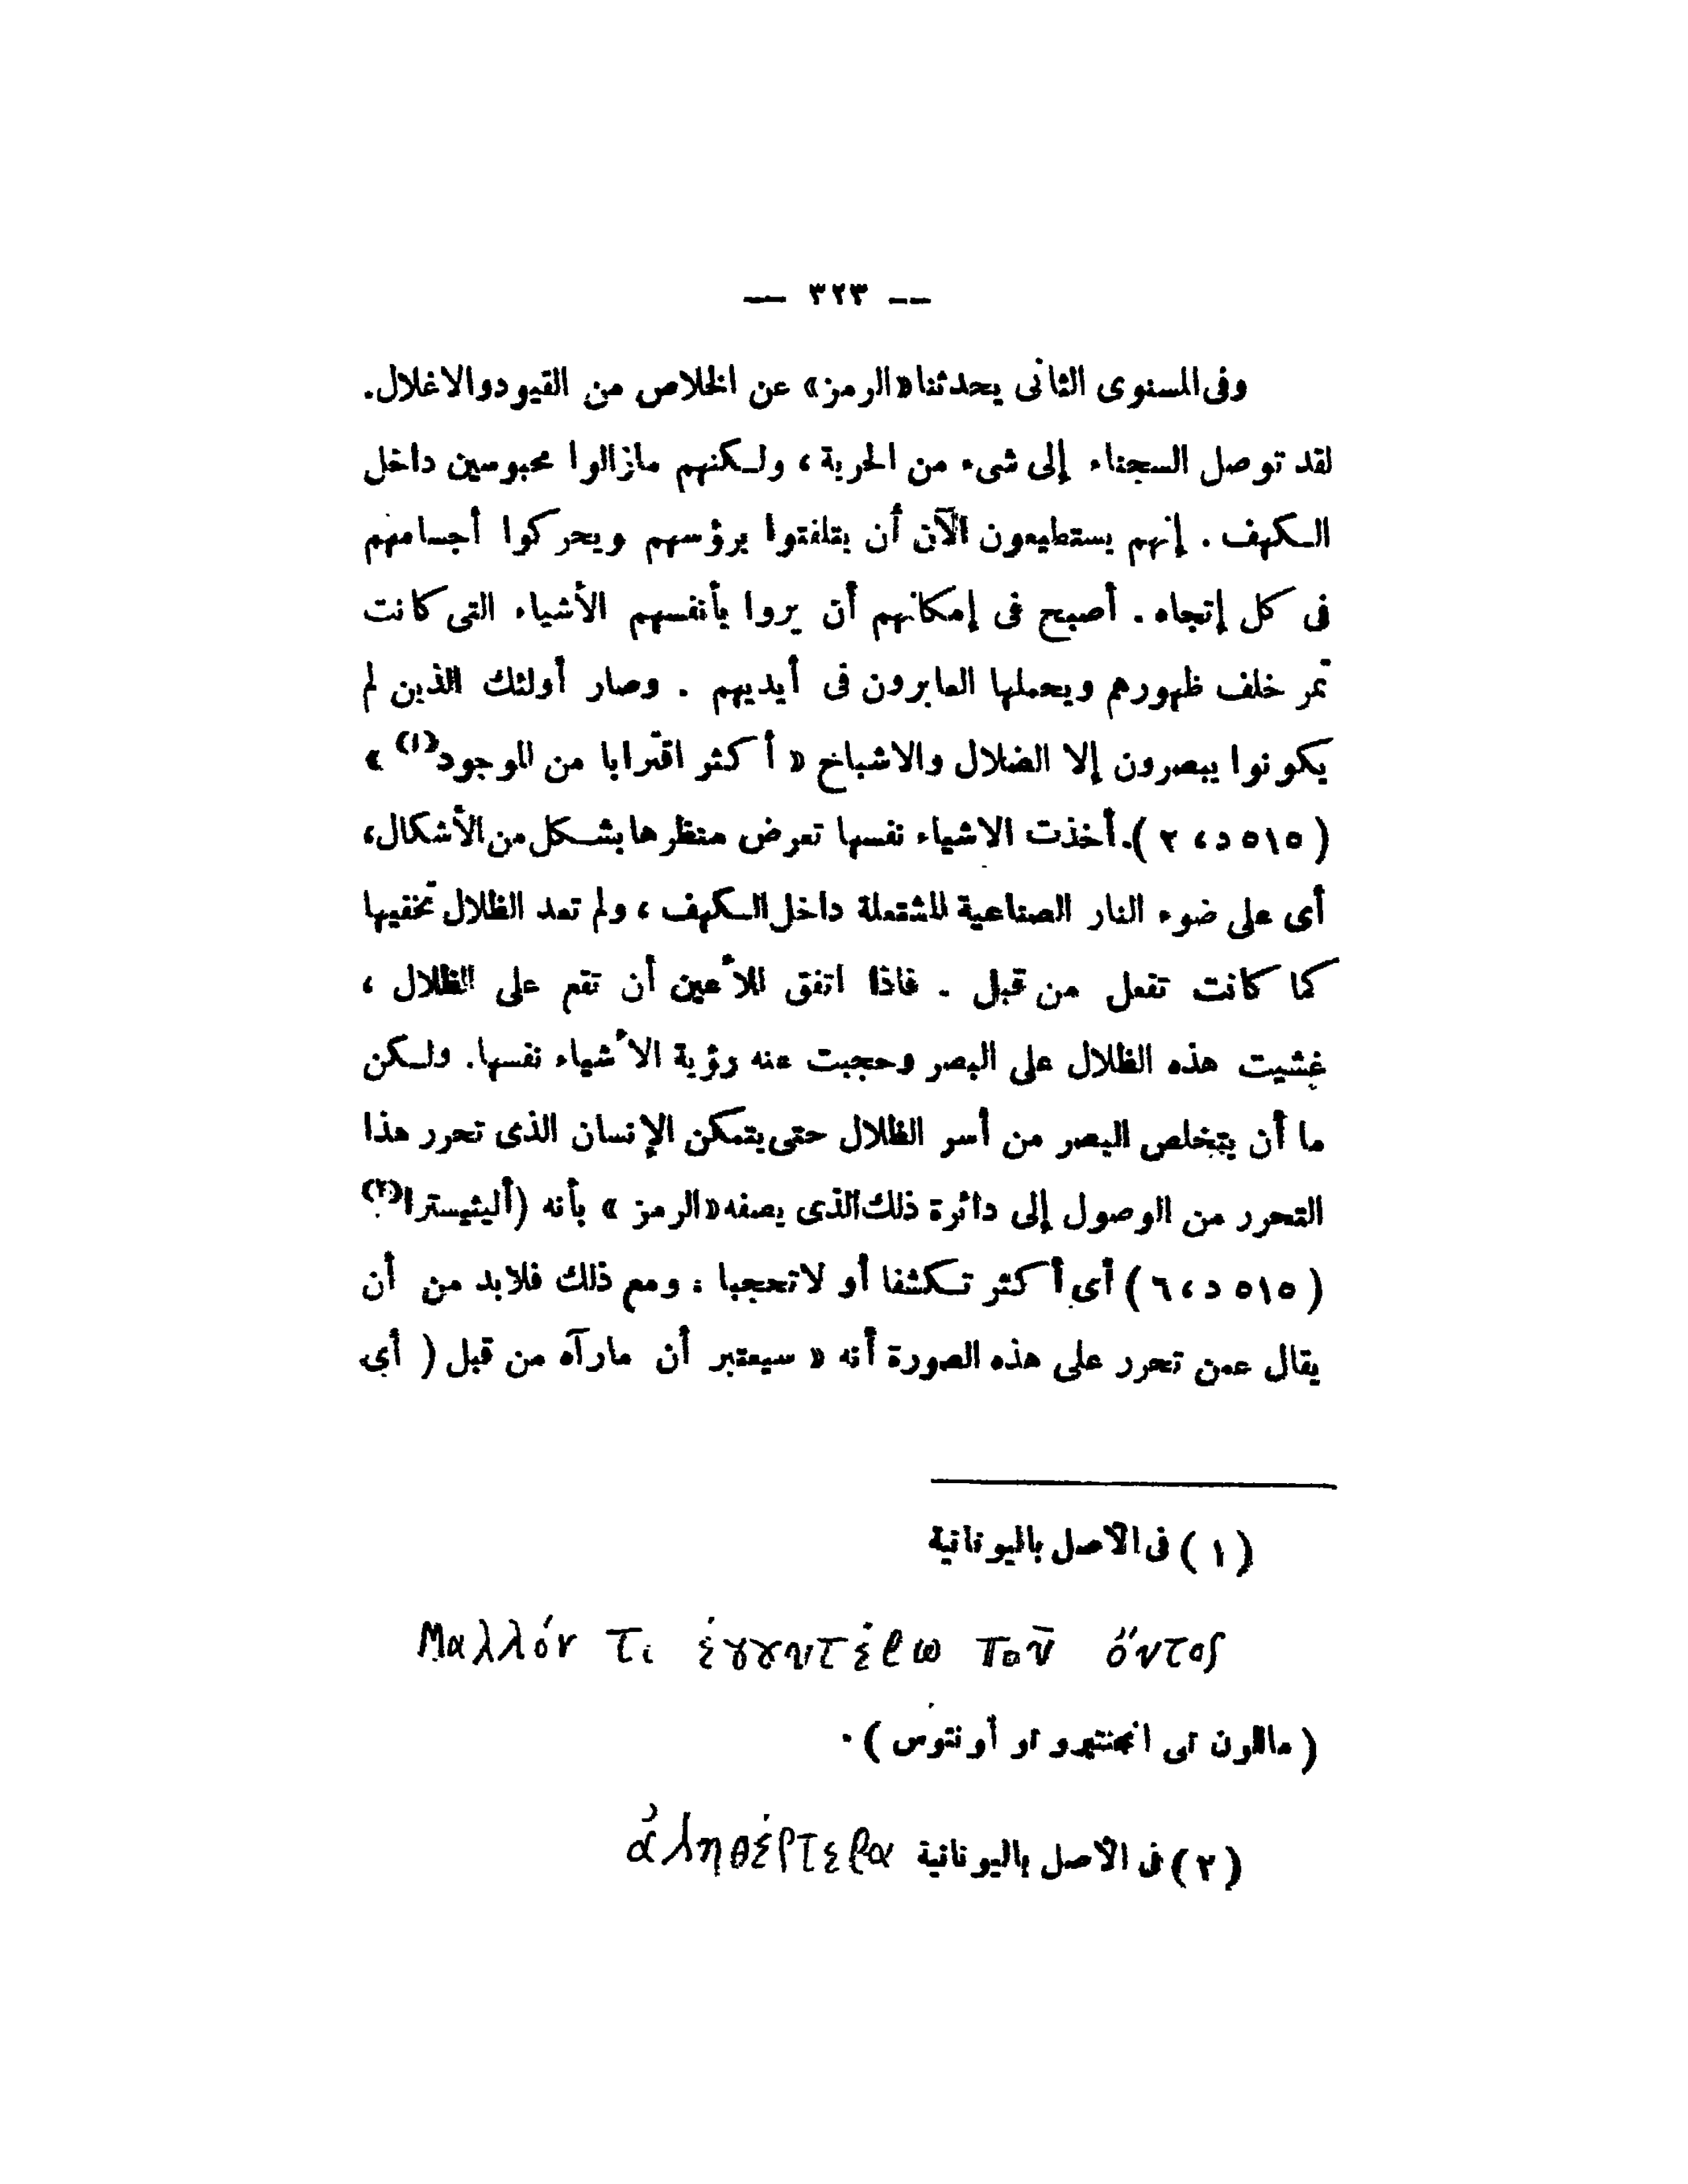 — ٣٢٣ —
وفى المستوى الثانى يحدثنا «الرمز» عن الخلاص من القيود والاغلال.
لقد توصل السجناء إلى شىء من الحرية ، ولـكنهم مازالوا محبوسين داخل
الـكهف . إنهم يستطيعون الآن أن يتلفتوا برؤسهم ويحركوا أجسامهم
فى كل إتجاه . أصبح فى إمكانهم أن يروا بأنفسهم الأشياء التى كانت
تمر خلف ظهورهم ويحملها العابرون فى أيديهم . وصار أولئك الذين لم
يكونوا يبصرون إلا الضلال والاشباح « أكثر اقترابا من الموجود(١) »
( ٥١٥ د، ٢ ). أخذت الاشياء نفسها تعرض منظرها بشـكل من الأشكال،
أى على ضوء النار الصناعية المشتعلة داخل الـكهف ، ولم تعد الظلال تخفيها
كما كانت تفعل من قبل . فاذا اتفق للأعين أن تقع على الظلال ،
غشيت هذه الظلال على البصر وحجبت عنه رؤية الأشياء نفسها. ولـكن
ما أن يتخلص البصر من أسر الظلال حتى يتمكن الإنسان الذى تحرر هذا
التحرر من الوصول إلى دائرة ذلك الذى يصفه «الرمز » بأنه (أليثيسترا(٢)
( ٥١٥ د، ٦ ) أى أكثر تـكشفا أو لاتحجبا : ومع ذلك فلابد من أن
يقال عمن تحرر على هذه الصورة أنه « سيعتبر أن مارآه من قبل ( أى
( ١ ) فى الأصل باليونانية
Μαλλόν τι έγγυτέρω τοῦ όντος
( ماللون تى انجنتيرو تو أونتوس ) .
( ٢ ) فى الأصل باليونانية ἀληθέστερα